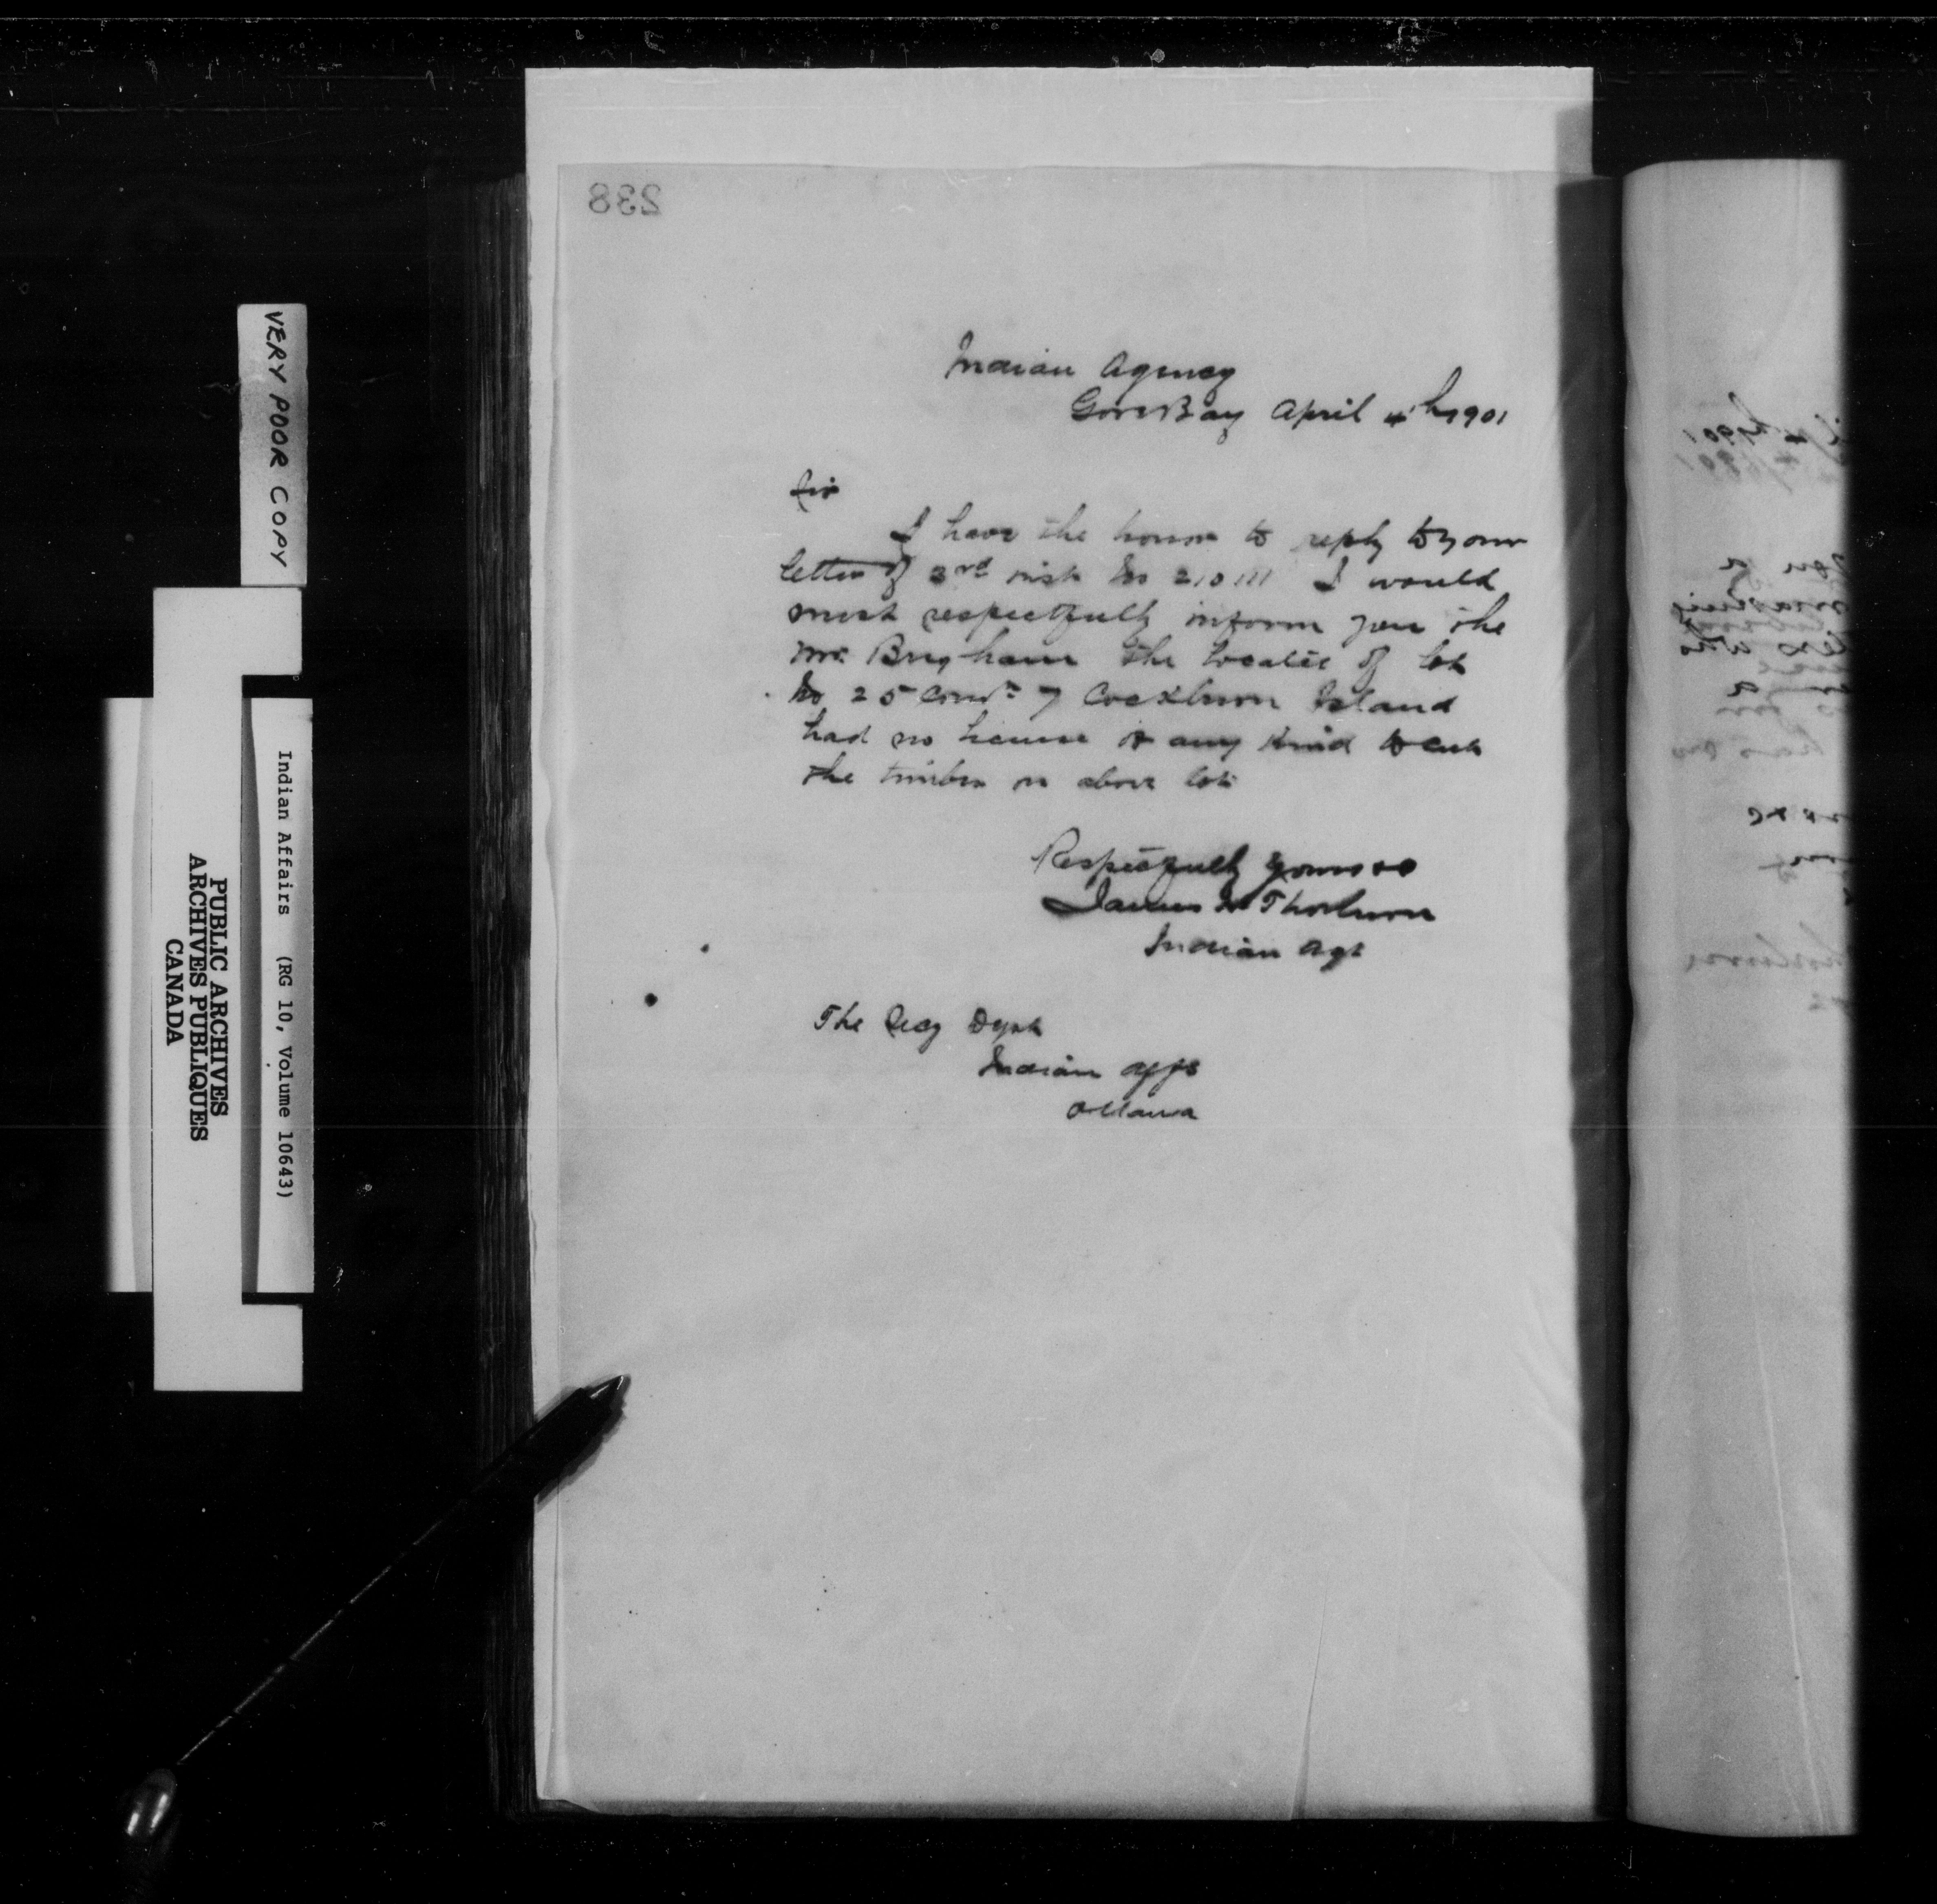 238
Indian Agency
Gore Bay April 4th 1901
Sir
I have the honor to reply to your
letter of 3rd inst No I would
most respectfully inform you the
Mr. Brigham the locatee of lot
No 25 Con 7 Cockburn Island
had no license of any kind to cut
the timber on above lot
Respectfully Yours
James H Thorburn
Indian Agt
The Secy Dept
Indian Affs
Ottawa
VERY POOR COPY
Indian Affairs (RG 10, Volume 10643)
PUBLIC ARCHIVES
ARCHIVES PUBLIQUES
CANADA